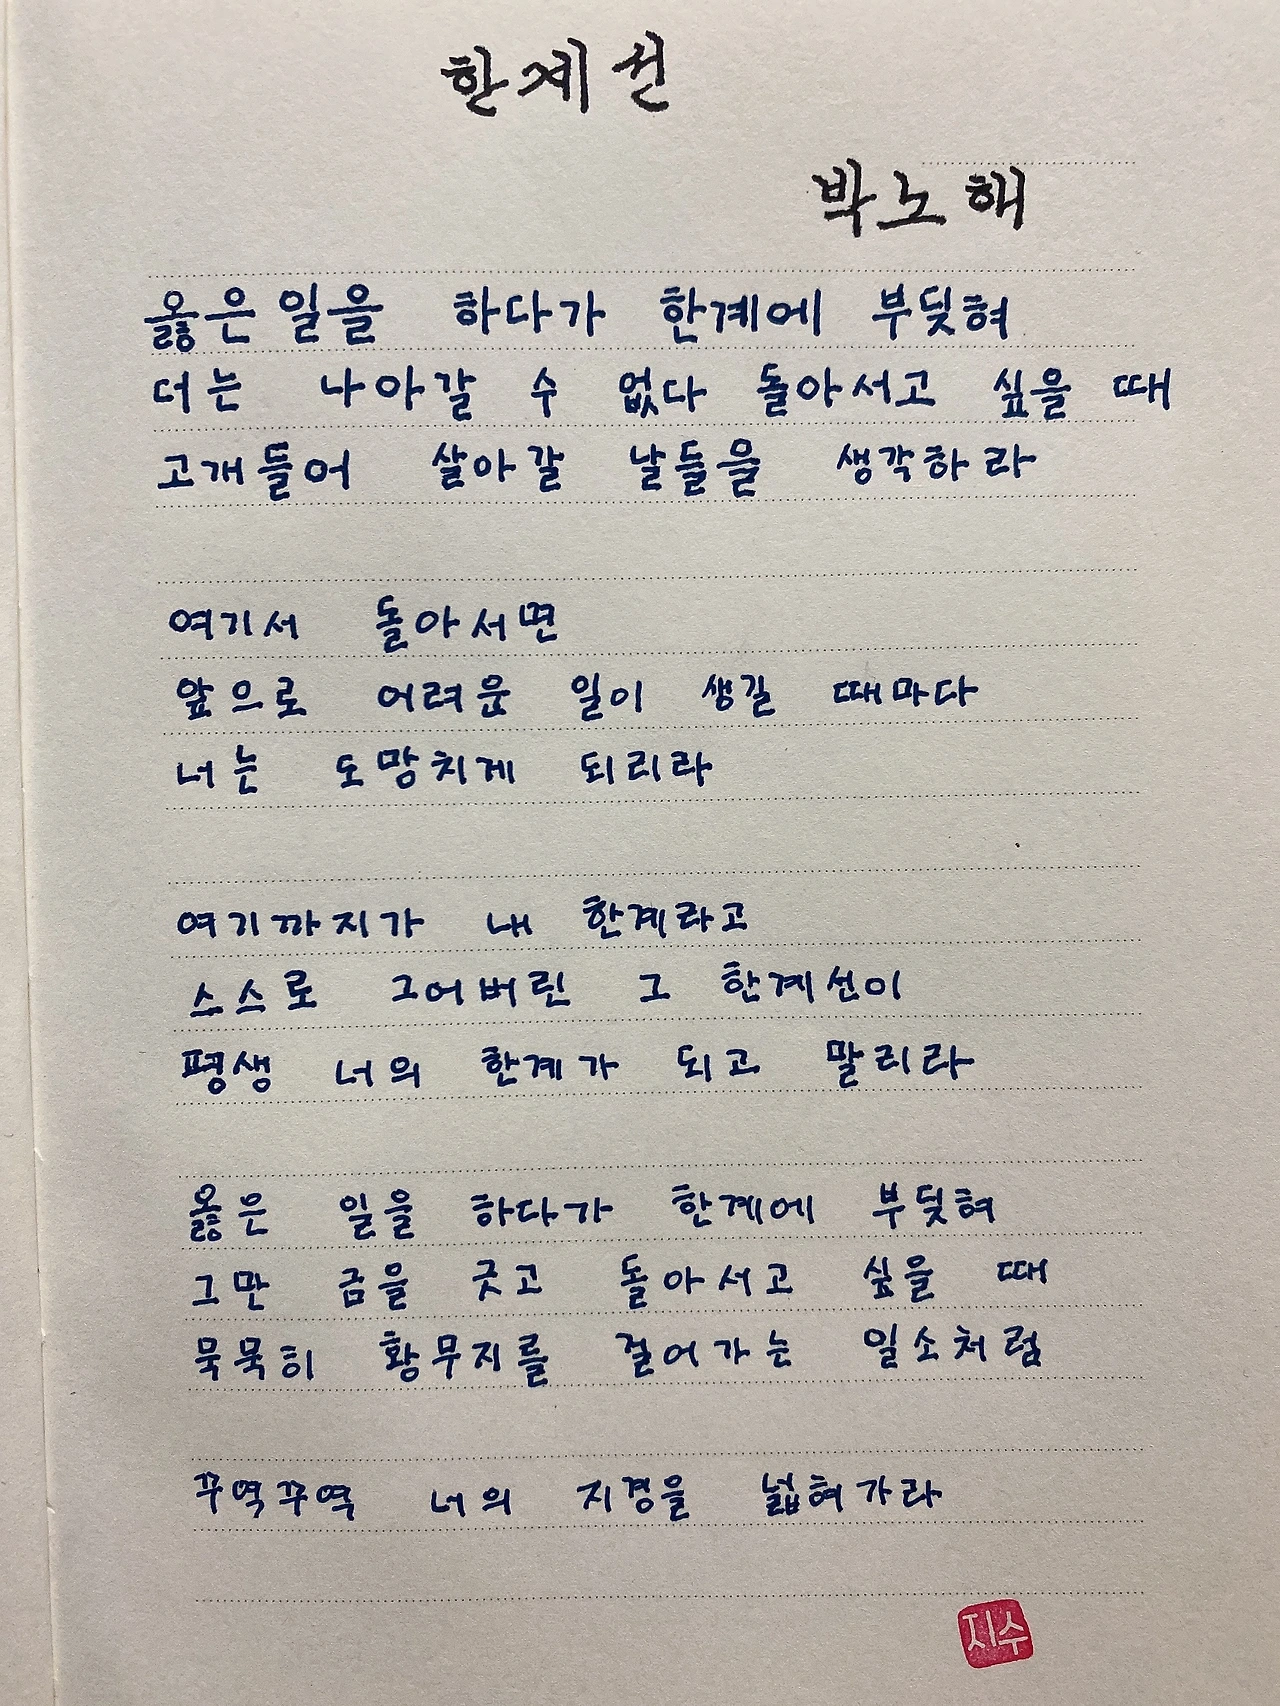 한계선
박노해
옳은일을 하다가 한계에 부딪혀
더는 나아갈 수 없다 돌아서고 싶을 때
고개들어 살아갈 날들을 생각하라
여기서 돌아서면
앞으로 어려운 일이 생길 때마다
너는 도망치게 되리라
여기까지가 내 한계라고
스스로 그어버린 그 한계선이
평생 너의 한계가 되고 말리라
옳은 일을 하다가 한계에 부딪혀
그만 금을 긋고 돌아서고 싶을 때
묵묵히 황무지를 걸어가는 일소처럼
꾸역꾸역 너의 지경을 넓혀가라
지수